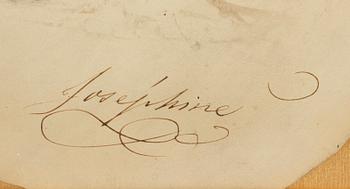 Joséphine